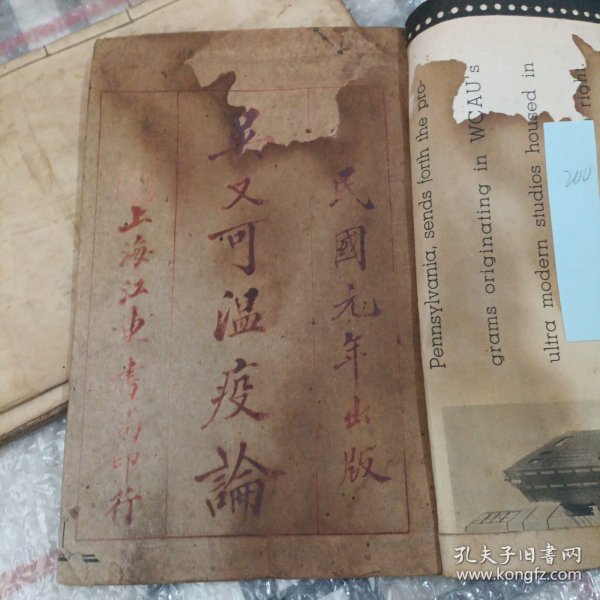 民國元年出版
吳又可溫疫論
上海江東書局印行
Pennsylvania, sends forth the pro-
grams originating in WCAU's
ultra modern studios housed in
right
200
孔夫子旧书网
www.kongfz.com